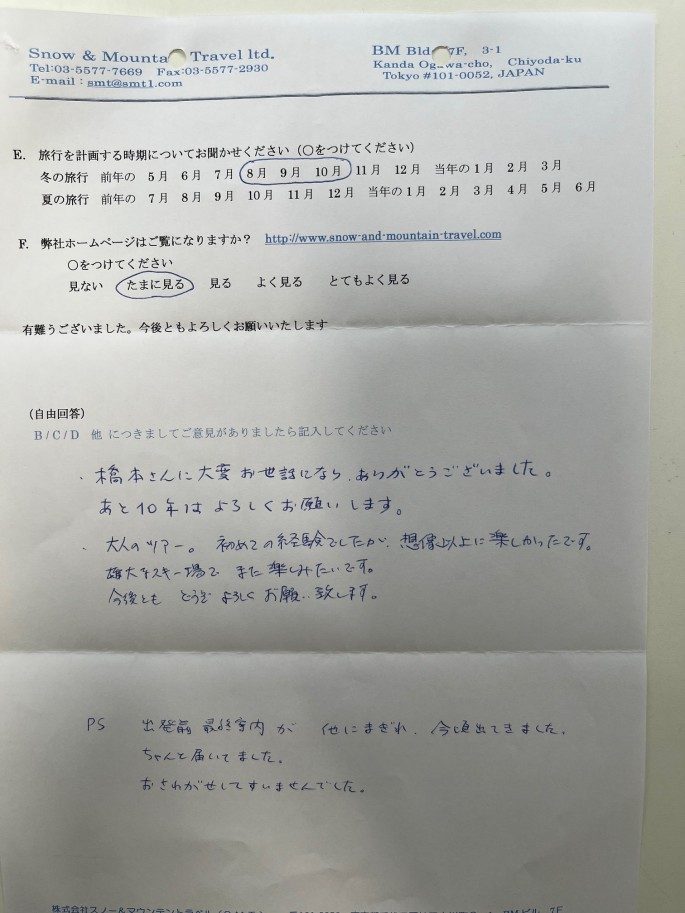 Snow & Mountain Travel ltd.
BM Bld 7F, 3-1
Tel:03-5577-7669 Fax:03-5577-2930
Kanda Ogawa-cho, Chiyoda-ku
E-mail : smt@smt1.com
Tokyo #101-0052, JAPAN
E. 旅行を計画する時期についてお聞かせください（○をつけてください）
冬の旅行 前年の 5月 6月 7月 8月 9月 10月 11月 12月 当年の1月 2月 3月
夏の旅行 前年の 7月 8月 9月 10月 11月 12月 当年の1月 2月 3月 4月 5月 6月
F. 弊社ホームページはご覧になりますか？ http://www.snow-and-mountain-travel.com
○をつけてください
見ない たまに見る 見る よく見る とてもよく見る
有難うございました。今後ともよろしくお願いいたします
（自由回答）
B / C / D 他 につきましてご意見がありましたら記入してください
・橋本さんに大変お世話になり、ありがとうございました。
あと10年はよろしくお願いします。
・大人のツアー。 初めての経験でしたが、想像以上に楽しかったです。
雄大なスキー場で また楽しみたいです。
今後とも どうぞ よろしくお願い致します。
PS 出発前 最終案内が 他にまぎれ、今頃出てきました。
ちゃんと届いてました。
おさわがせしてすいませんでした。